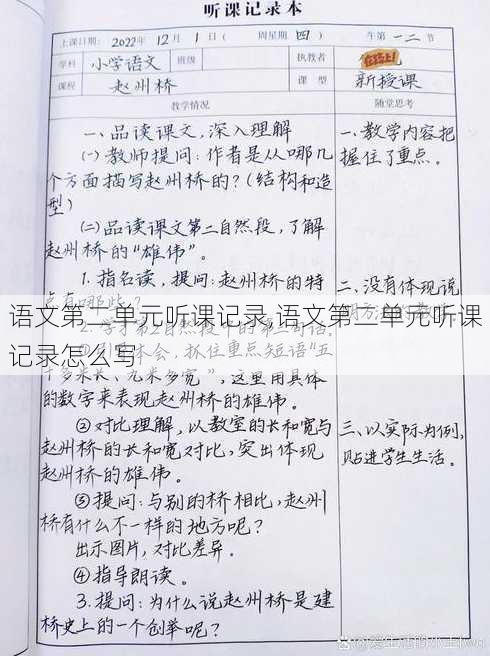 听课记录本
上课日期：2022年12月1日（周星期四）午第一二节
学科 小学语文 班级 执教者
课程 赵州桥 课型 新授课
教学情况 随堂思考
一、品读课文，深入理解
(一)教师提问：作者是从哪几
个方面描写赵州桥的？(结构和造
型)
(二)品读课文第二自然段，了解
赵州桥的“雄伟”。
1.指名读，提问：赵州桥的特
语文第二单元听课记录,语文第二单元听课
记录怎么写
十多米长、九米多宽”，这里用具体
的数字来表现赵州桥的雄伟。
②对比理解，以教室的长和宽与
赵州桥的长和宽对比，突出体现
赵州桥的雄伟。
③提问：与别的桥相比，赵州
桥有什么不一样的地方呢？
出示图片，对比差异。
④指导朗读。
3.提问：为什么说赵州桥是建
桥史上的一个创举呢？
一、教学内容把
握住了重点。
二、没有体现说
三、以实际为例，
贴进学生生活。